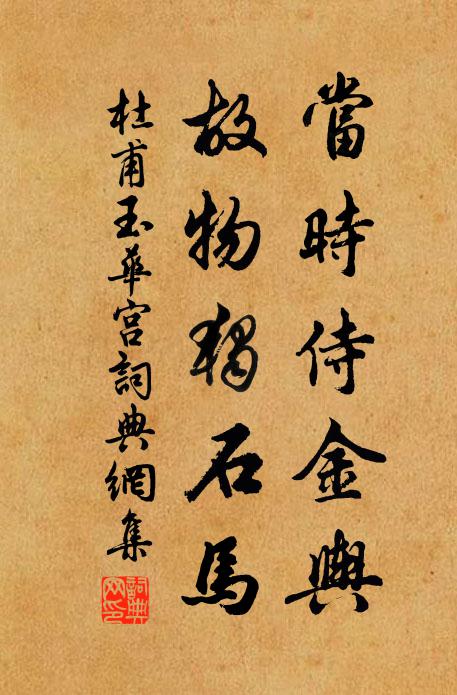 當時侍金輿
故物獨石馬
杜甫玉華宮詞典網集
詞典网印